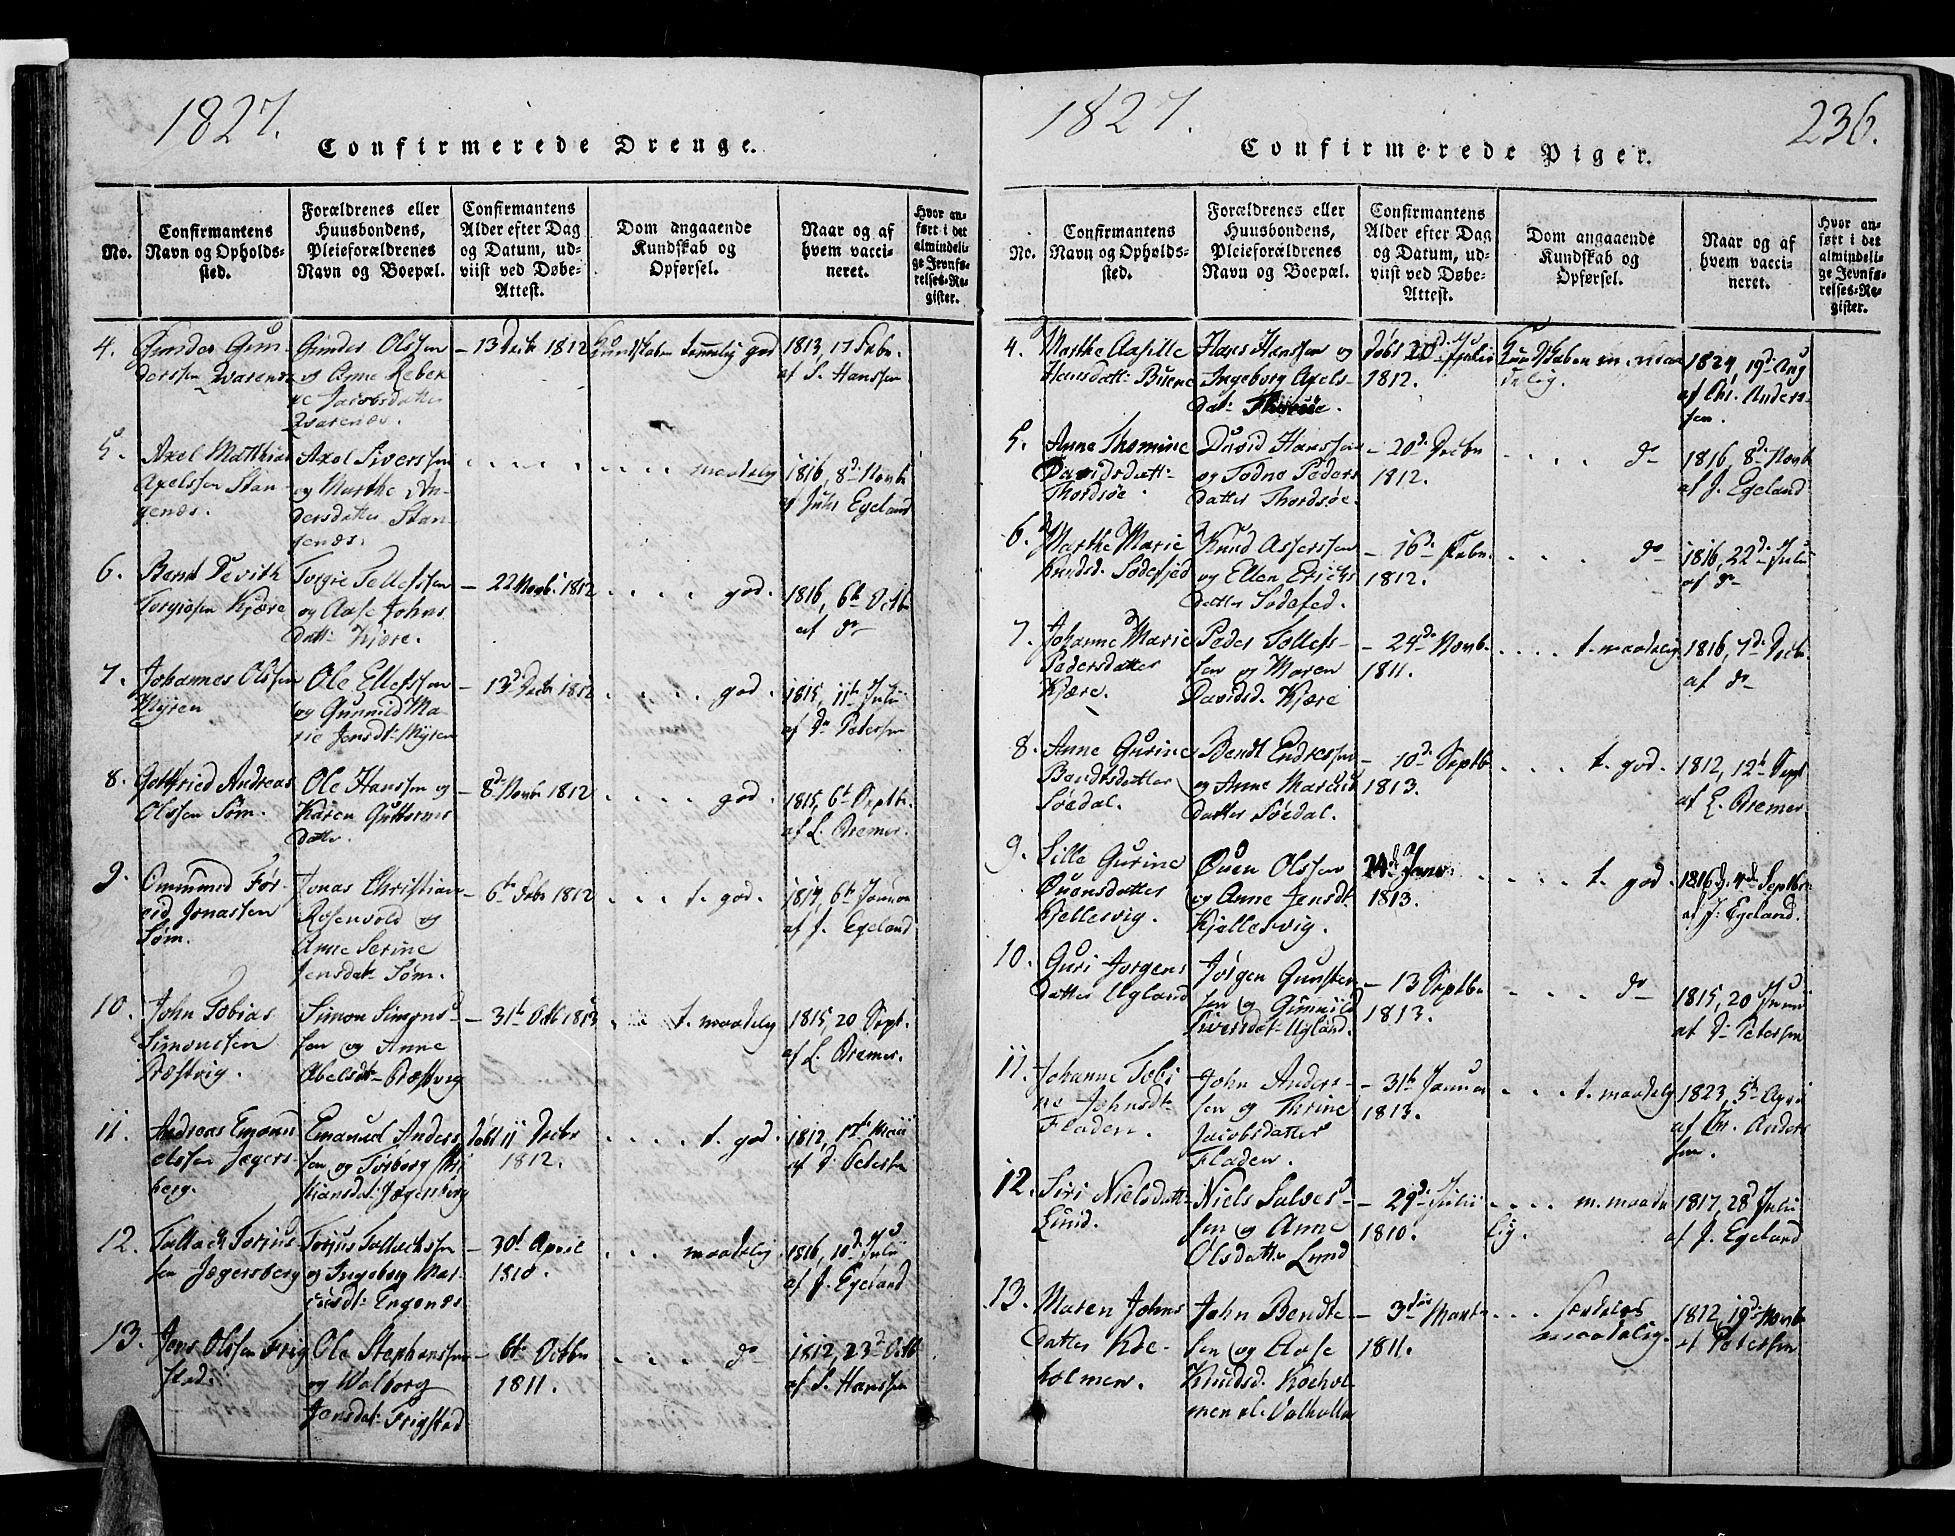 1827.
Confirmerede Drenge.
No.
Confirmantens
Navn og Opholds-
sted.
Forældrenes eller
Huusbondens,
Pleieforældrenes
Navn og Boepæl.
Confirmantens
Alder efter Dag
og Datum, ud-
viist ved Døbe-
Attest.
Dom angaaende
Kundskab og
Opførsel.
Naar og af
hvem vacci-
neret.
Hvor an-
ført i det
almindeli-
ge Jevnfø-
relses-Re-
gister.
4.
Gunder Gun-
dersen
Gunder Olssen
og Anne Rebek
ke Jacobsdatter
Qvarenæs.
- 13 Decbr 1812
Kundskaben temmelig god
1813, 17 Febr.
af S. Hanssen
5.
Axel Matthias
Axelssen Stan-
genæs.
Axel Siverssen
og Marthe An-
dersdatter Stan-
genæs.
. . . . . maadelig
1816, 8d Novb
af Juhs Egeland
6.
Bent Devith
Torgiøsen Kjære
Torgie Tellefssen
og Aase Johns
datt: Kjære.
- 22 Novb. 1812
. . . . god.
1816, 6th Octb
af do
7.
Johannes Olssen
Myren
Ole Ellefssen
og Gunnild Ma-
rie Jensdt: Myren
- 13d Decbr 1812
. . . . god.
1815, 11th Julii
af Dn Petersen
8.
Gottfried Andreas
Olssen Søm.
Ole Hanssen og
Karen Guttorms
datter.
- 8de Novbr 1812
. . . . god.
1815, 6t Septbr.
af L. Bremer.
9.
Ommund Før-
rid Jonassen
Søm.
Jonas Christian
Rosenvold og
Anne Serine
Jensdatt Søm.
- 6te Febr 1812
. . . t. god.
1817, 6th Januar
af J. Egeland
10.
John Tobias
Simonssen
Præstvig.
Simon Simons-
sen og Anne
Abelsdt- Præstvig
- 31th Octb 1813
. . . t. maadelig
1815, 20 Sept.
af L. Bremer.
11.
Andreas Emanu
elssen Jegers-
berg.
Emanuel Anders
sen og Torborg
Hansdat: Jægersberg
døbt 11 Decbr
1812.
. . . . t. god.
1812, 12th Maii
af D. Petersen
12.
Tallach Torjus-
sen Jægersberg
Torjus Tallachssen
og Ingeborg Mar-
cusdt: Engenæs
- 30d April
1810.
. . . maadelig
1816, 10d Julii
af J. Egeland
13.
Jens Olssen Frig
stad.
Ole Stephanssen
og Walborg
Jensdat: Frigstad
- 6te Octbr
1811.
. . . . do
1812, 23d Octb
af S. Hanssen
1827.
236.
Confirmerede Piger.
No.
Confirmantens
Navn og Opholds-
sted.
Forældrenes eller
Huusbondens,
Pleieforældrenes
Navn og Boepæl.
Confirmantens
Alder efter Dag
og Datum, ud-
viist ved Døbe-
Attest.
Dom angaaende
Kundskab og
Opførsel.
Naar og af
hvem vacci-
neret.
Hvor an-
ført i det
almindeli-
ge Jevnfø-
relses-Re-
gister.
4.
Marthe Aasille
Hansdatt: Buene
Hans Hanssen og
Ingeborg Axels-
dat:
døbt 20d Julii
1812.
Kundskaben m. maa
delig.
1824, 19d Aug
af Chr. Anders-
sen.
5.
Anne Thomine
Davidsdatt:
Thordsøe.
David Hanssen
og Todne Peders
datter Thordsøe.
- 20de Decbr
1812.
. . . . do
1816 8d Novb
af J. Egeland
6.
Marthe Marie
Knudsd. Sodefjed
Knud Asserssen
og Ellen Erichs
datter Sodefed.
- 16de Febr.
1812.
. . . . do
1816, 22de Julii
af do
7.
Johanne Marie
Pedersdatter
Kjære.
Peder Tollefs-
sen og Maren
Davidsd. Kjære
- 24de Novb.
1811.
. . . . t. maadelig
1816, 7de Decbr
af do
8.
Anne Gurine
Bendtsdatter
Søedal.
Bendt Endressen
og Anne Marcus
datter Søedal.
- 10de Septb
1813.
. . . t. god.
1812, 12t Sept
af L. Bremer
9.
Sille Gurine
Øvensdatter
Kjellesvig.
Øven Olssen
og Anne Jensdt.
Kjellesvig.
24d Janr.
1813.
. . . . t. god.
1816, 4d Septbr
af J. Egeland.
10.
Guri Jorgens
datter Ugland
Jørgen Gunsten
sen og Gunnild
Siversdat- Ugland.
- 13 Septbr
1813.
. . . . do
1815, 20 Junii
af D. Petersen
11.
Johanne Tobi
ne Johnsdt
Fladen.
John Anders-
sen og Thrine
Jacobsdatter
Fladen.
- 31th Januar
1813.
. . . . t. maadelig
1823, 5th April
af Chr. Anders
sen.
12.
Siri Nielsdatt-
Lund.
Niels Salves-
sen og Anne
Olsdatter Lund
- 29de Julii
1810.
. . . . m. maade
lig.
1817, 28d Julii
af J. Egeland
13.
Maren Johns
datter Koe-
holmen.
John Bendt-
sen og Aase
Knudsd. Koehol
men el. Valhollm
- 3die Marts
1811.
. . . særdeles
maadelig.
1812, 19d Novb
af Petersen